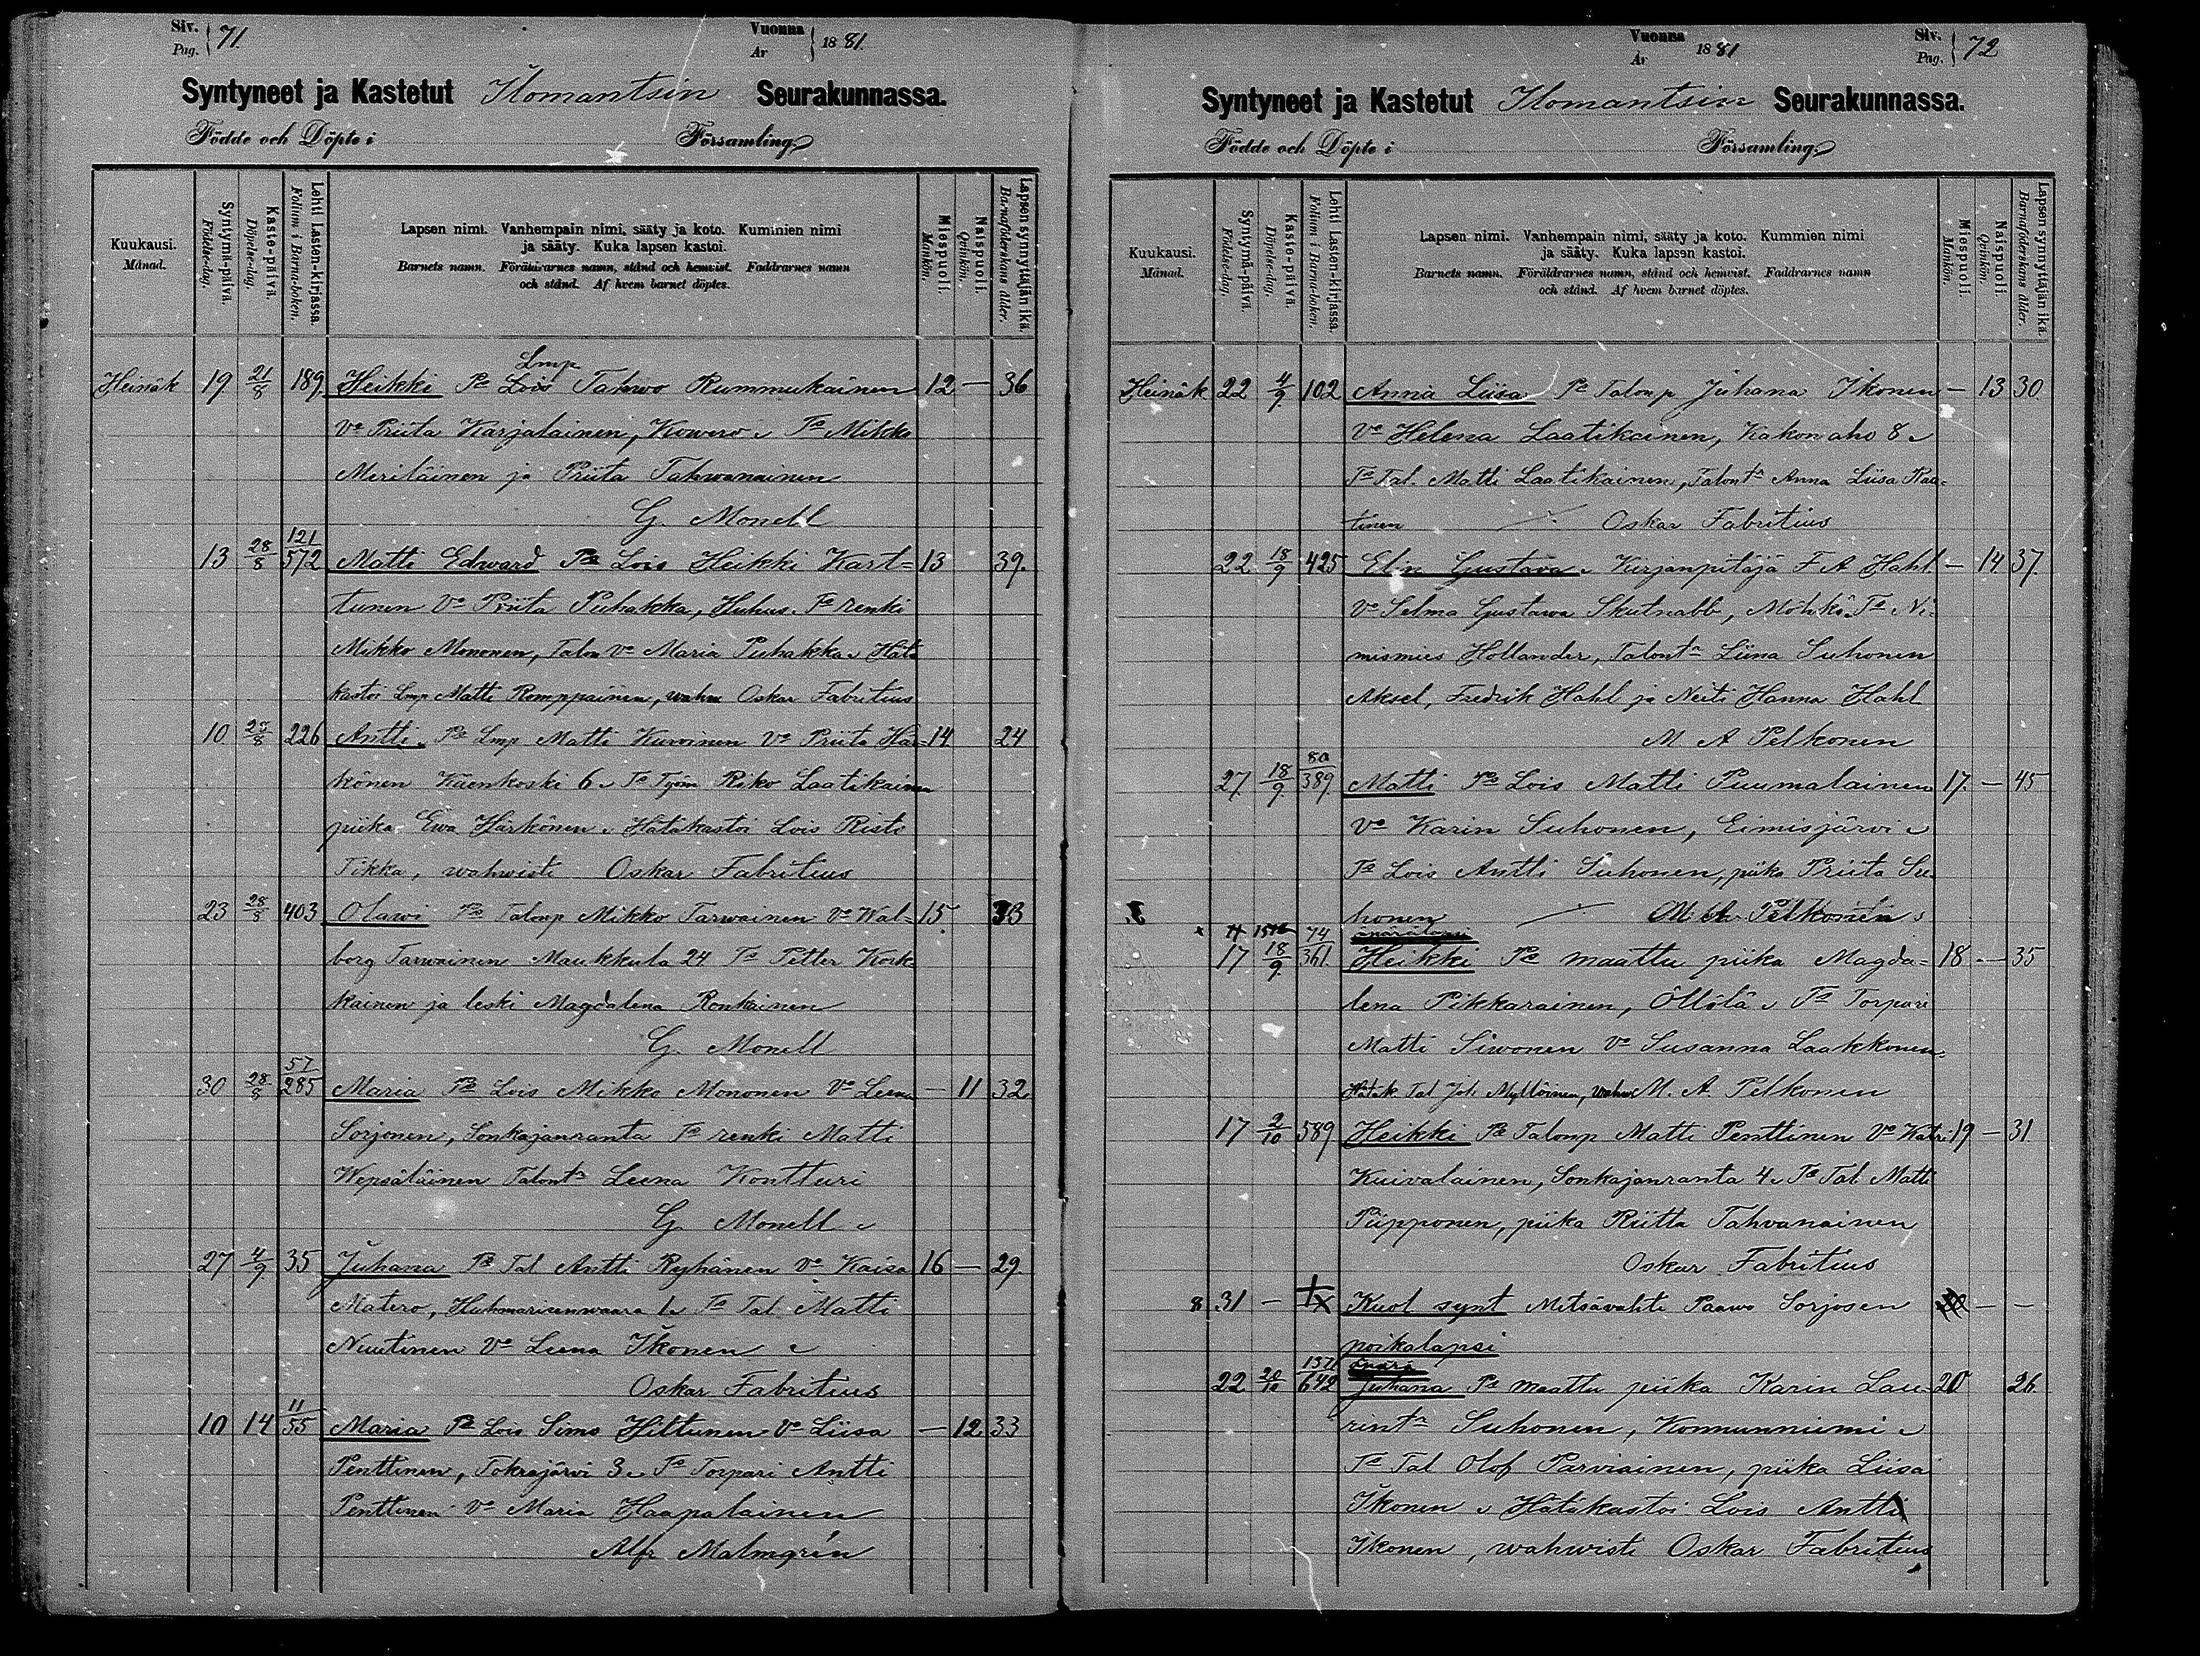 Siv. Pag. 71.
Vuonna År 1881.
Syntyneet ja Kastetut Ilomantsin Seurakunnassa.
Födde och Döpte i Församling.
Kuukausi. Månad.
Syntymä-päivä. Födelse-dag.
Kaste-päivä. Döpelse-dag.
Lehti Lasten-kirjassa. Folium i Barna-boken.
Lapsen nimi. Vanhempain nimi, sääty ja koto. Kummien nimi
ja sääty. Kuka lapsen kastoi.
Barnets namn. Föräldrarnes namn, stånd och hemvist. Faddrarnes namn
och stånd. Af hvem barnet döptes.
Miespuoli. Mankön.
Naispuoli. Qvinkön.
Lapsen synnyttäjän ikä. Barnaföderskans ålder.
Lmp
Heinäk 19 21/8 189 Heikki Pa Lois Tahwo Rummukainen 12 — 36
Vo Priita Karjalainen, Kowero. To Mikko
Meriläinen ja Priita Tahwanainen
G. Monell
13 28/8 121/572 Matti Edward Pa Lois Heikki Kart= 13 39.
tunen Vo Priita Puhakka, Huhus. To renki
Mikko Mononen, Talon Vo Maria Puhakka. Hätä
kastoi Lmp Matti Romppainen, wahw Oskar Fabritius
10 28/8 226 Antti. Pa Lmp Matti Kuwoinen Vo Priita Här= 14 24
könen Käenkoski 6. To Työm Riko Laatikainen
piika Ewa Härkönen. Hätäkastoi Lois Risto
Tikka, wahwisti Oskar Fabritius
23 28/8 403 Olawi Pa Talonp Mikko Tarwainen Vo Wal= 15 33
borg Tarwainen Maukkula 24 To Petter Kork=
kainen ja leski Magdalena Ronkainen
G. Monell
30 28/8 57/285 Maria Pa Lois Mikko Mononen Vo Leena — 11 32
Sorjonen, Sonkajanranta To renki Matti
Wepsäläinen Talontr Leena Kontturi
G. Monell
27 4/9 35 Juhana Pa Tal Antti Ryhänen Vo Kaisa 16 — 29
Matero, Huhmarisenwaara 1. To Tal Matti
Nuutinen Vo Leena Ikonen
Oskar Fabritius
10 14 11/55 Maria Pa Lois Simo Hiltunen Vo Liisa — 12 33
Penttinen, Tokrajärvi 3. To Torpari Antti
Penttinen Vo Maria Haapalainen
Alfr Malmgrén
Vuonna År 1881
Siv. Pag. 72
Syntyneet ja Kastetut Ilomantsin Seurakunnassa.
Födde och Döpte i Församling.
Kuukausi. Månad.
Syntymä-päivä. Födelse-dag.
Kaste-päivä. Döpelse-dag.
Lehti Lasten-kirjassa. Folium i Barna-boken.
Lapsen nimi. Vanhempain nimi, sääty ja koto. Kummien nimi
ja sääty. Kuka lapsen kastoi.
Barnets namn. Föräldrarnes namn, stånd och hemvist. Faddrarnes namn
och stånd. Af hvem barnet döptes.
Miespuoli. Mankön.
Naispuoli. Qvinkön.
Lapsen synnyttäjän ikä. Barnaföderskans ålder.
Heinäk 22 4/9 102 Anna Liisa Pa Talonp Juhana Ikonen — 13 30
Vo Helena Laatikainen, Kakonaho 8.
To Tal. Matti Laatikainen, Talontr Anna Liisa Raa=
tinen Oskar Fabritius
22 18/9 425 Elin Gustava. Kirjanpitäjä F A Hahl — 14 37
Vo Selma Gustawa Skutnabb, Möhkö. To Ni=
mismies Hollander, Talontr Liina Suhonen
Aksel, Fredrik Hahl ja Neiti Hanna Hahl
M A Pelkonen
27 18/9 80/389 Matti Pa Lois Matti Puumalainen 17. — 45
Vo Karin Suhonen, Eimisjärvi
To Lois Antti Suhonen, piika Priita Su=
honen M. A. Pelkonen
17 18/9 74/361 Heikki Pa maattu piika Magda= 18 — 35
lena Pikkarainen, Öllölä. To Torpari
Matti Siwonen Vo Susanna Laakkonen
Hätäk Tal Joh Myllöinen, wahw M. A. Pelkonen
17 2/10 589 Heikki Pa Talonp Matti Penttinen Vo Katri 19 — 31
Kuivalainen, Sonkajanranta 4. To Tal Matti
Piipponen, piika Riitta Tahvanainen
Oskar Fabritius
8 31 — Kuol synt Metsävahti Paawo Sorjosen — —
poikalapsi
22 20/10 642 Juhana Pa maattu piika Karin Lau= 20 26
rintr Suhonen, Konnunniemi
To Tal Olof Parviainen, piika Liisa
Ikonen. Hätäkastoi Lois Antti
Ikonen, wahwisti Oskar Fabritius